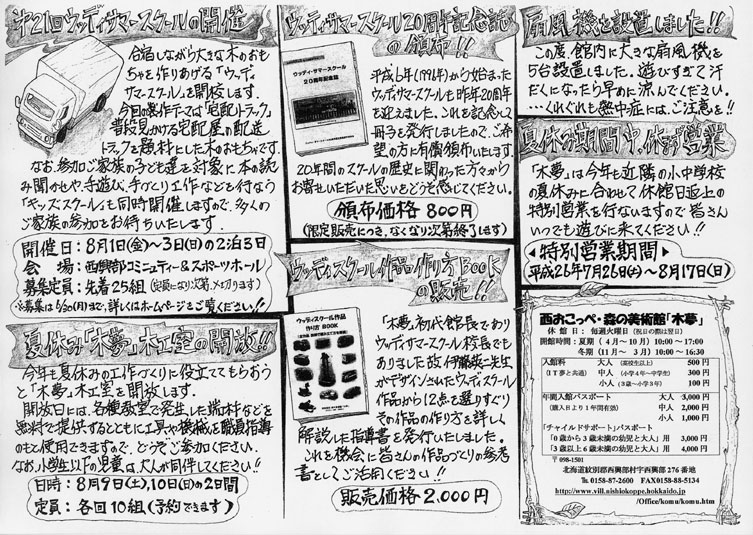 第21回ウッディサマースクールの開催
合宿しながら大きな木のおも
ちゃを作りあげる「ウッディ
サマースクール」を開校します。
今回の製作テーマは「宅配トラック」
普段見かける宅配屋の配送
トラックを題材にした木のおもちゃです。
なお、参加ご家族の子ども達を対象に本の読
み聞かせや、手遊び、手づくり工作などを行なう
「キッズスクール」も同時開催しますので、多くの
ご家族の参加をお待ちいたします。
開催日:8月1日(金)~3日(日)の2泊3日
会 場:西興部コミュニティー&スポーツホール
募集定員:先着25組(定員になり次第、〆切ります)
※募集は5/20(月)まで、詳しくはホームページをご覧ください!!
夏休み「木夢」木工室の開放!!
今年も夏休みの工作づくりに役立ててもらおう
と「木夢」木工室を開放します。
開放日には、各種教室で発生した端材などを
無料で提供するとともに工具や機械を職員指導
のもと使用できますので、どうぞご参加ください。
なお、小学生以下の児童は、大人が同伴してください!!
日時:8月9日(土),10日(日)の2日間
定員:各回10組(予約できます)
ウッディサマースクール20周年記念誌
の頒布!!
ウッディ・サマースクール
20周年記念誌
平成6年(1994年)から始まった
ウッディサマースクールも昨年20周年
を迎えました。これを記念して
冊子を発行しましたので、ご希
望の方に有償頒布いたします
20年間のスクールの歴史に関わった方々から
お寄せいただいた思いをどうぞ感じてください。
頒布価格 800円
(限定販売につき、なくなり次第終了します)
ウッディスクール作品作り方BOOK
の販売!!
ウッディスクール作品
作り方 BOOK
「木夢」初代館長でおり
ウッディサマースクール校長でも
ありました故 伊藤英二先生
がデザインされたウッディスクール
作品から12点を選りすぐり
その作品の作り方を詳しく
解説した指導書を発行いたしました。
これを機会に皆さんの作品づくりの参考
書としてご活用ください!!
販売価格 2,000円
扇風機を設置しました!!
この度、館内に大きな扇風機を
5台設置しました。遊びすぎて汗
だくになったら早めに涼んでください。
…くれぐれも熱中症には、ご注意を!!
夏休み期間中、休まず営業
「木夢」は今年も近隣の小中学校
の夏休みに合わせて休館日返上の
特別営業を行ないますので皆さん
いつでも遊びに来てください!!
◀特別営業期間▶
平成26年7月26日(土)~8月17日(日)
西おこっぺ・森の美術館「木夢」
休館日:毎週火曜日(祝日の際は翌日)
開館時間:夏期(4月~10月)10:00~17:00
冬期(11月~3月)10:00~16:30
入館料 大人(高校生以上) 500円
(IT夢と共通) 中人(小学4年~中学生) 300円
小人(3歳~小学3年) 100円
年間入館パスポート 大人 3,000円
(購入日より1年間有効) 中人 2,000円
小人 1,000円
「チャイルドサポート」パスポート
「0歳から3歳未満の幼児と大人」用 3,000円
「3歳以上6歳未満の幼児と大人」用 4,000円
〒098-1501
北海道紋別郡西興部村字西興部276番地
Tel 0158-87-2600 FAX0158-88-5134
http://www.vill.nishiokoppe.hokkaido.jp
/Office/komu/komu.htm